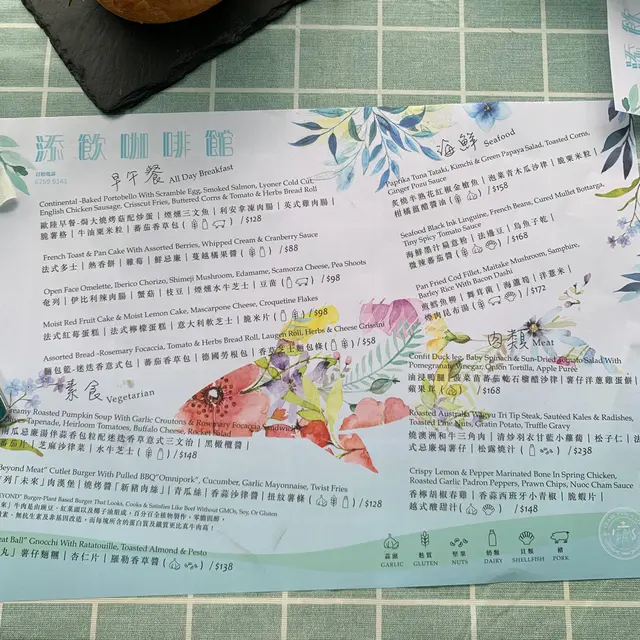 添飲咖啡館
訂座電話
早午餐 All Day Breakfast
Continental -Baked Portobello With Scramble Egg, Smoked Salmon, Lyoner Cold Cut,
English Chicken Sausage, Crisscut Fries, Buttered Corns & Tomato & Herbs Bread Roll
歐陸早餐-焗大燒烤菇配炒蛋 | 煙燻三文魚 | 利安拿凍肉腸 | 英式雞肉腸 |
脆薯格 | 牛油粟米粒 | 蕃茄香草包 | /$128
French Toast & Pan Cake With Assorted Berries, Whipped Cream & Cranberry Sauce
法式多士 | 熱香餅 | 雜莓 | 鮮忌廉 | 蔓越橘果醬 /$88
Open Face Omelette, Iberico Chorizo, Shimeji Mushroom, Edamame, Scamorza Cheese, Pea Shoots
奄列 | 伊比利辣肉腸 | 蟹菇 | 枝豆 | 煙燻水牛芝士 | 豆苗 /$98
Moist Red Fruit Cake & Moist Lemon Cake, Mascarpone Cheese, Croquetine Flakes
法式紅莓蛋糕 | 法式檸檬蛋糕 | 意大利軟芝士 | 脆米片 /$98
Assorted Bread -Rosemary Focaccia, Tomato & Herbs Bread Roll, Laugen Roll, Herbs & Cheese Grissini
麵包籃-迷迭香意式包 | 蕃茄香草包 | 德國勞根包 | 香草芝士麵包條 /$58
素食 Vegetarian
Creamy Roasted Pumpkin Soup With Garlic Croutons & Rosemary Focaccia Sandwich
Tapenade, Heirloom Tomatoes, Buffalo Cheese, Rocket Salad
南瓜忌廉湯伴蒜香包粒配迷迭香草意式三文治 | 黑橄欖醬 |
蕃茄片 | 芝麻菜沙律 | 水牛芝士 /$148
Beyond Meat" Cutlet Burger With Pulled BBQ"Omnipork", Cucumber, Garlic Mayonnaise, Twist Fries
「未來」肉漢堡 | 燒烤醬「新豬肉絲」 | 青瓜絲 | 香蒜沙律醬 | 扭紋薯條 /$128
BEYOND" Burger-Plant Based Burger That Looks, Cooks & Satisfies Like Beef Without GMOs, Soy, Or Gluten
Meat Ball" Gnocchi With Ratatouille, Toasted Almond & Pesto
丸」薯仔麵糰 | 杏仁片 | 羅勒香草醬 /$138
海鮮 Seafood
Paprika Tuna Tataki, Kimchi & Green Papaya Salad, Toasted Corns,
Ginger Ponzu Sauce
炙燒半熟花紅椒金槍魚 | 泡菜青木瓜沙律 | 脆粟米粒 |
柑橘薑醋醬油 /$158
Seafood Black Ink Linguine, French Beans, Cured Mullet Bottarga,
Tiny Spicy Tomato Sauce
海鮮墨汁扁意粉 | 法邊豆 | 烏魚子乾 |
微辣蕃茄醬 /$168
Pan Fried Cod Fillet, Maitake Mushroom, Samphire,
Barley Rice With Bacon Dashi
煎鱈魚柳 | 舞茸菌 | 海蘆筍 | 洋薏米 |
煙肉昆布湯 /$172
肉類 Meat
Confit Duck leg, Baby Spinach & Sun-Dried Tomato Salad With
Pomegranate Vinegar, Onion Tortilla, Apple Purée
油浸鴨腿 | 菠菜苗蕃茄乾石榴醋沙律 | 薯仔洋蔥雞蛋餅 |
蘋果茸 /$168
Roasted Australia Wagyu Tri Tip Steak, Sautéed Kales & Radishes,
Toasted Pine Nuts, Gratin Potato, Truffle Gravy
燒澳洲和牛三角肉 | 清炒羽衣甘藍小蘿蔔 | 松子仁 | 法
式忌廉焗薯仔 | 松露燒汁 /$238
Crispy Lemon & Pepper Marinated Bone In Spring Chicken,
Roasted Garlic Padron Peppers, Prawn Chips, Nuoc Cham Sauce
香檸胡椒春雞 | 香蒜西班牙小青椒 | 脆蝦片 |
越式酸甜汁 /$148
蒜頭 麩質 堅果 奶類 貝類 豬
GARLIC GLUTEN NUTS DAIRY SHELLFISH PORK